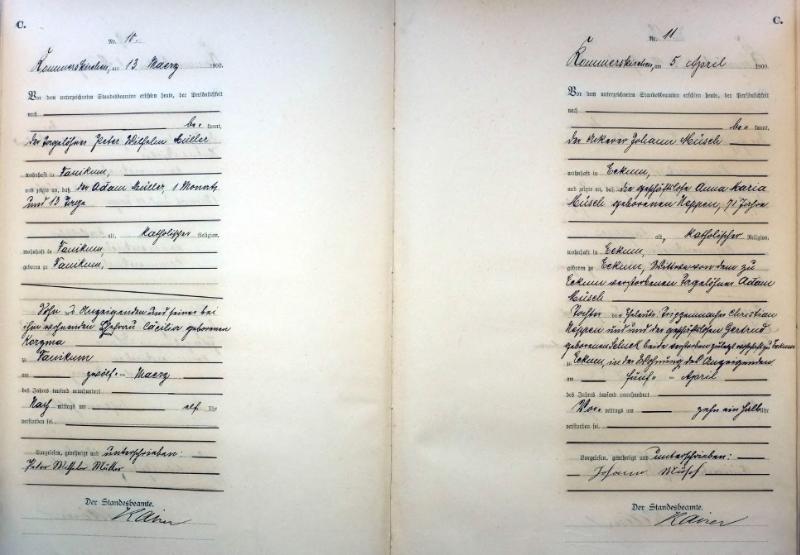 C.
Nr. 10.
Rommerskirchen, am 13 Maerz 1900.
Vor dem unterzeichneten Standesbeamten erschien heute, der Persönlichkeit
nach
be= kannt,
der Tagelöhner Peter Wilhelm Müller
wohnhaft in Vanikum
und zeigte an, daß der Adam Müller, 1 Monate
und 13 Tage
alt, katholischer Religion,
wohnhaft in Vanikum,
geboren zu Vanikum,
Sohn des Anzeigenden und seiner bei
ihm wohnenden Ehefrau Cäcilia geborenen
zu Vanikum
am zwölf= Maerz
des Jahres tausend neunhundert
Nach mittags um elf Uhr
verstorben sei.
Vorgelesen, genehmigt und unterschrieben:
Peter Wilhelm Müller
Der Standesbeamte.
C.
Nr. 11
Rommerskirchen, am 5 April 1900.
Vor dem unterzeichneten Standesbeamten erschien heute, der Persönlichkeit
nach
be= kannt,
der Ackerer Johann Müsch
wohnhaft in Eckum,
und zeigte an, daß die geschäftslose Anna Maria
Müsch geborenen Neppen, 71 Jahre
alt, katholischer Religion,
wohnhaft in Eckum,
geboren zu Eckum, Wittwe von dem zu
Eckum verstorbenen Tagelöhner Adam
Müsch
Tochter der Eheleute Christian
Neppen und der geschäftslosen Gertrud
geborenen beide verstorben zuletzt wohnhaft zu Eckum
zu Eckum, in der Wohnung des Anzeigenden
am fünf= April
des Jahres tausend neunhundert
Vor= mittags um zehn ein halb Uhr
verstorben sei.
Vorgelesen, genehmigt und unterschrieben:
Johann Müsch
Der Standesbeamte.